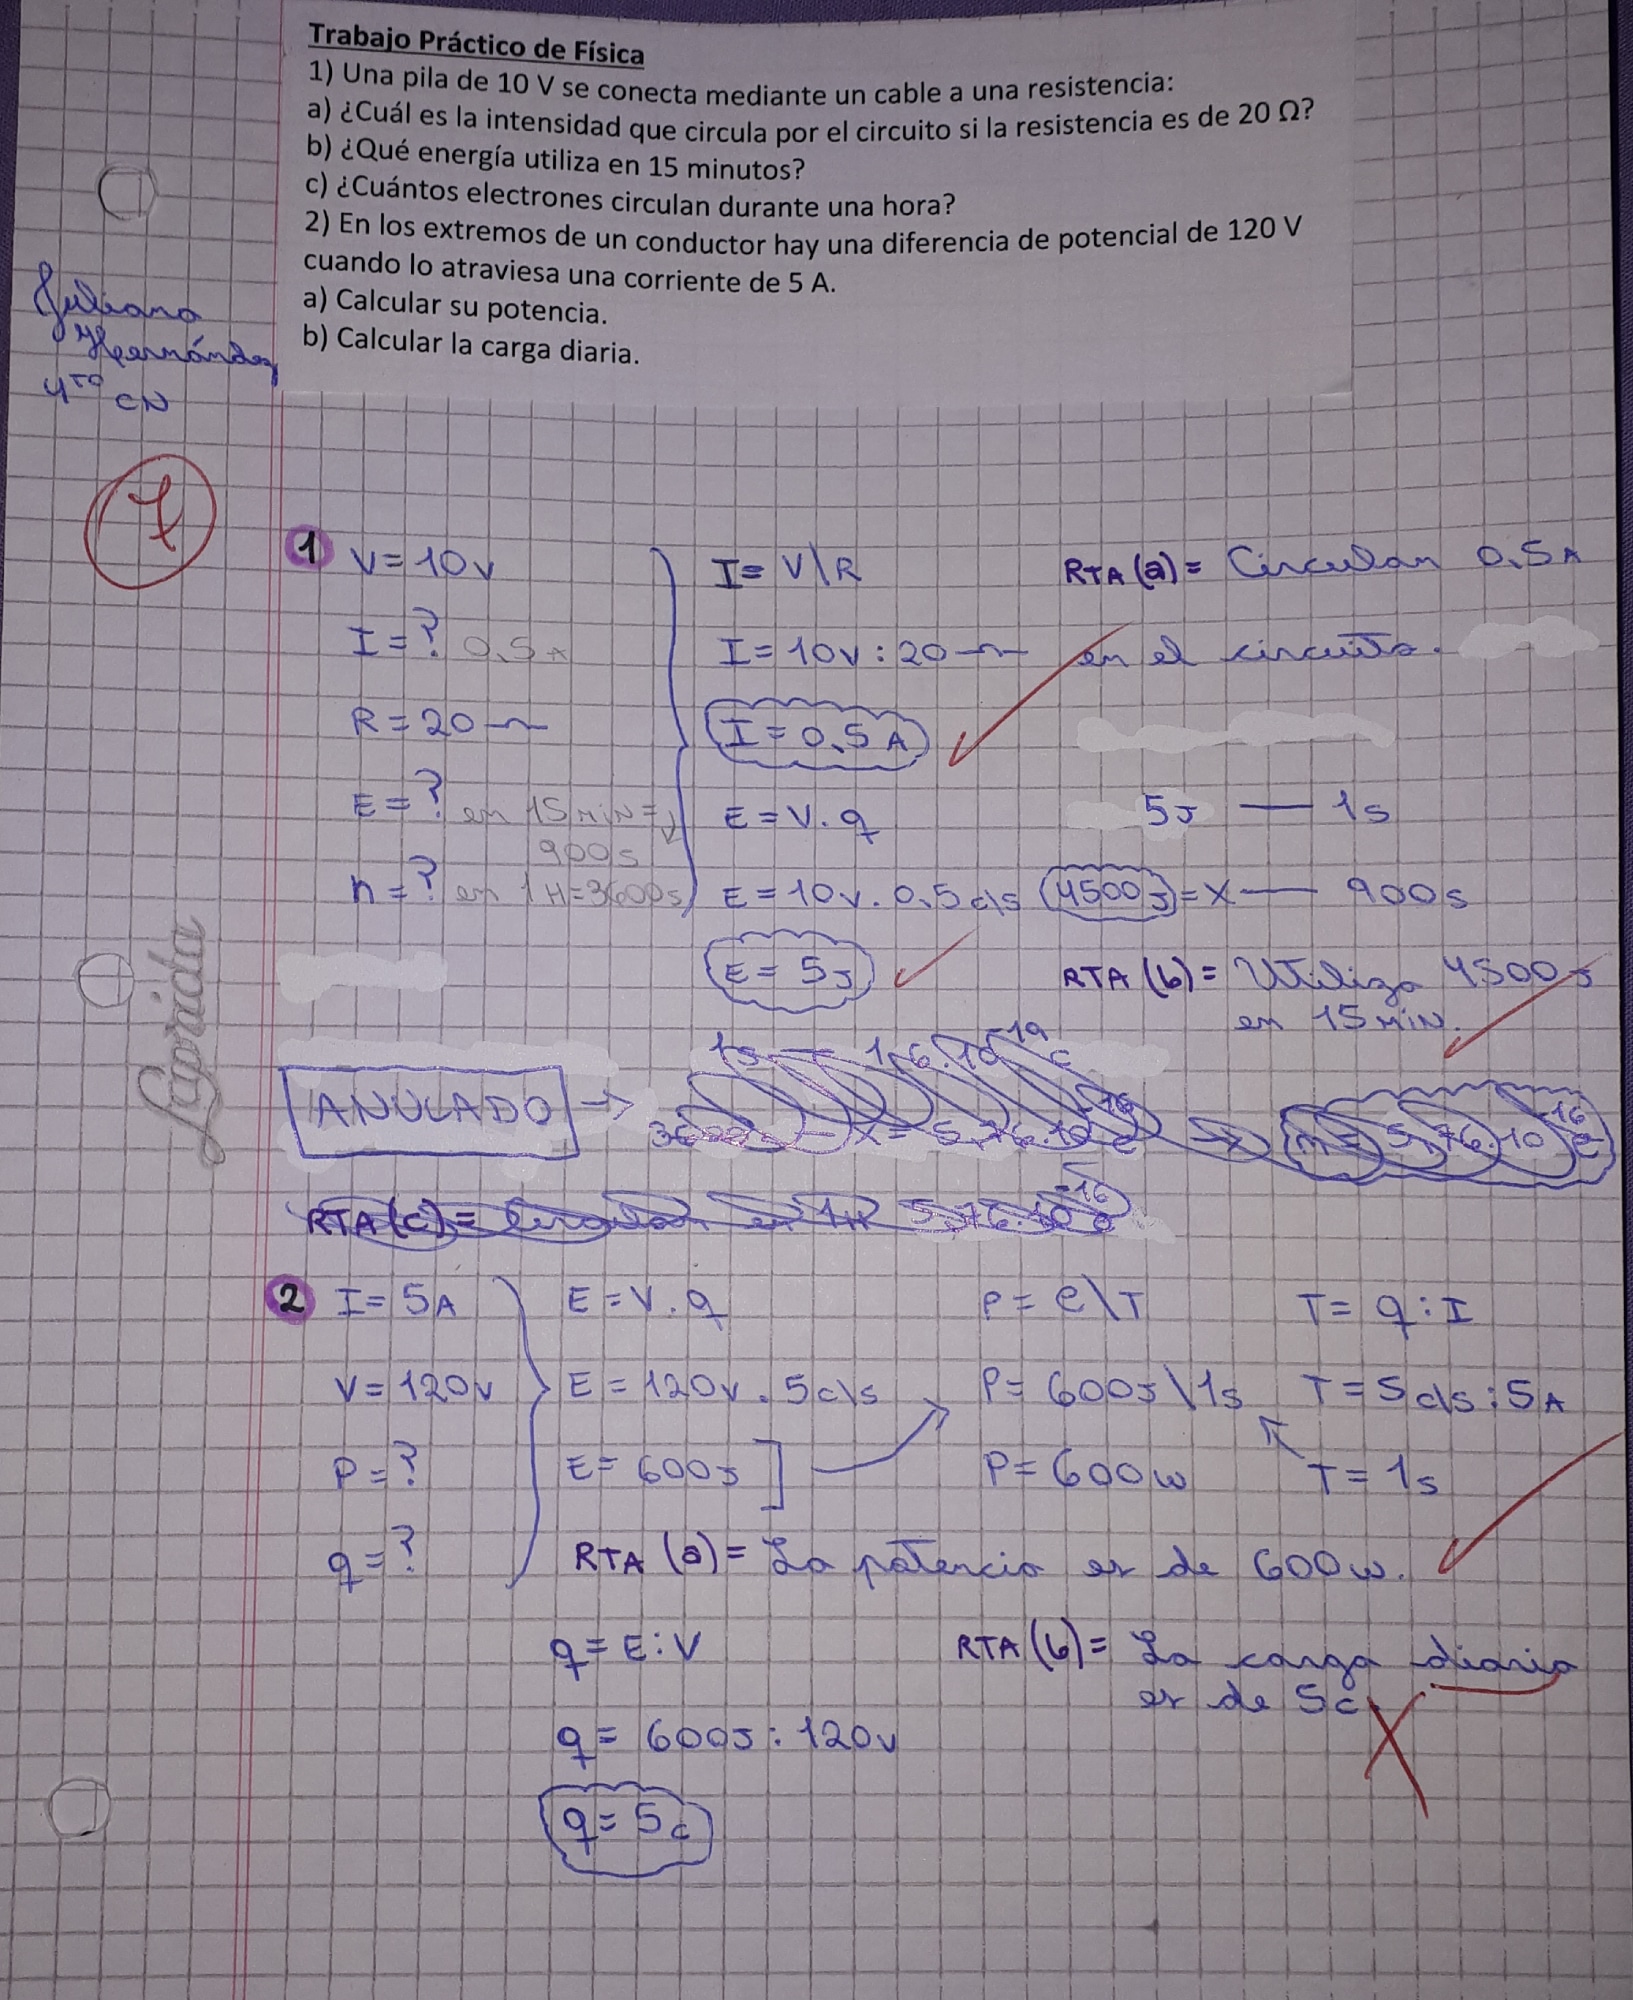 Trabajo Práctico de Física
1) Una pila de 10 V se conecta mediante un cable a una resistencia:
a) ¿Cuál es la intensidad que circula por el circuito si la resistencia es de 20 Ω?
b) ¿Qué energía utiliza en 15 minutos?
c) ¿Cuántos electrones circulan durante una hora?
2) En los extremos de un conductor hay una diferencia de potencial de 120 V
cuando lo atraviesa una corriente de 5 A.
a) Calcular su potencia.
b) Calcular la carga diaria.
Juliana
Hernández
4TO CN
7
1 V=10V
I=? 0.5A
R=20Ω
E=? en 15 MIN=
900s
n=? en 1H=3600s
I= V\R
I=10V:20Ω
I=0.5A
E=V.q
E=10V.0,5c\s
E=5J
RTA (a)= Circulan 0.5A
en el circuito.
5J — 1s
4500J=X— 900s
RTA (b)= Utiliza 4500J
en 15MIN.
Laprida
ANULADO →
1s — 1,6.10-19 c
3600s — X= 5,76.10-16 e → n= 5,76.10-16 e
RTA(c)= Circulan en 1H 5,76.10-16 e
2 I=5A
V=120V
P=?
q=?
E=V.q
E=120V.5c\s
E=600J
P=e\T
P=600J\1s
P=600w
T=q:I
T=5c\s:5A
T=1s
RTA (a)= La potencia es de 600w.
q=E:V
q=600J:120V
q=5c
RTA (b)= La carga diaria
es de 5c